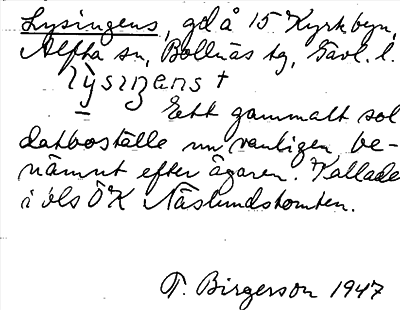 Lysingens, gd å 15 Kyrkbyn,
Alfta sn, Bollnäs tg, Gävl. l.
Ett gammalt sol
datboställe nu vanligen be-
nämnt efter ägaren. Kallade
i öls ÖK Näslundstomten.
T. Birgerson 1947